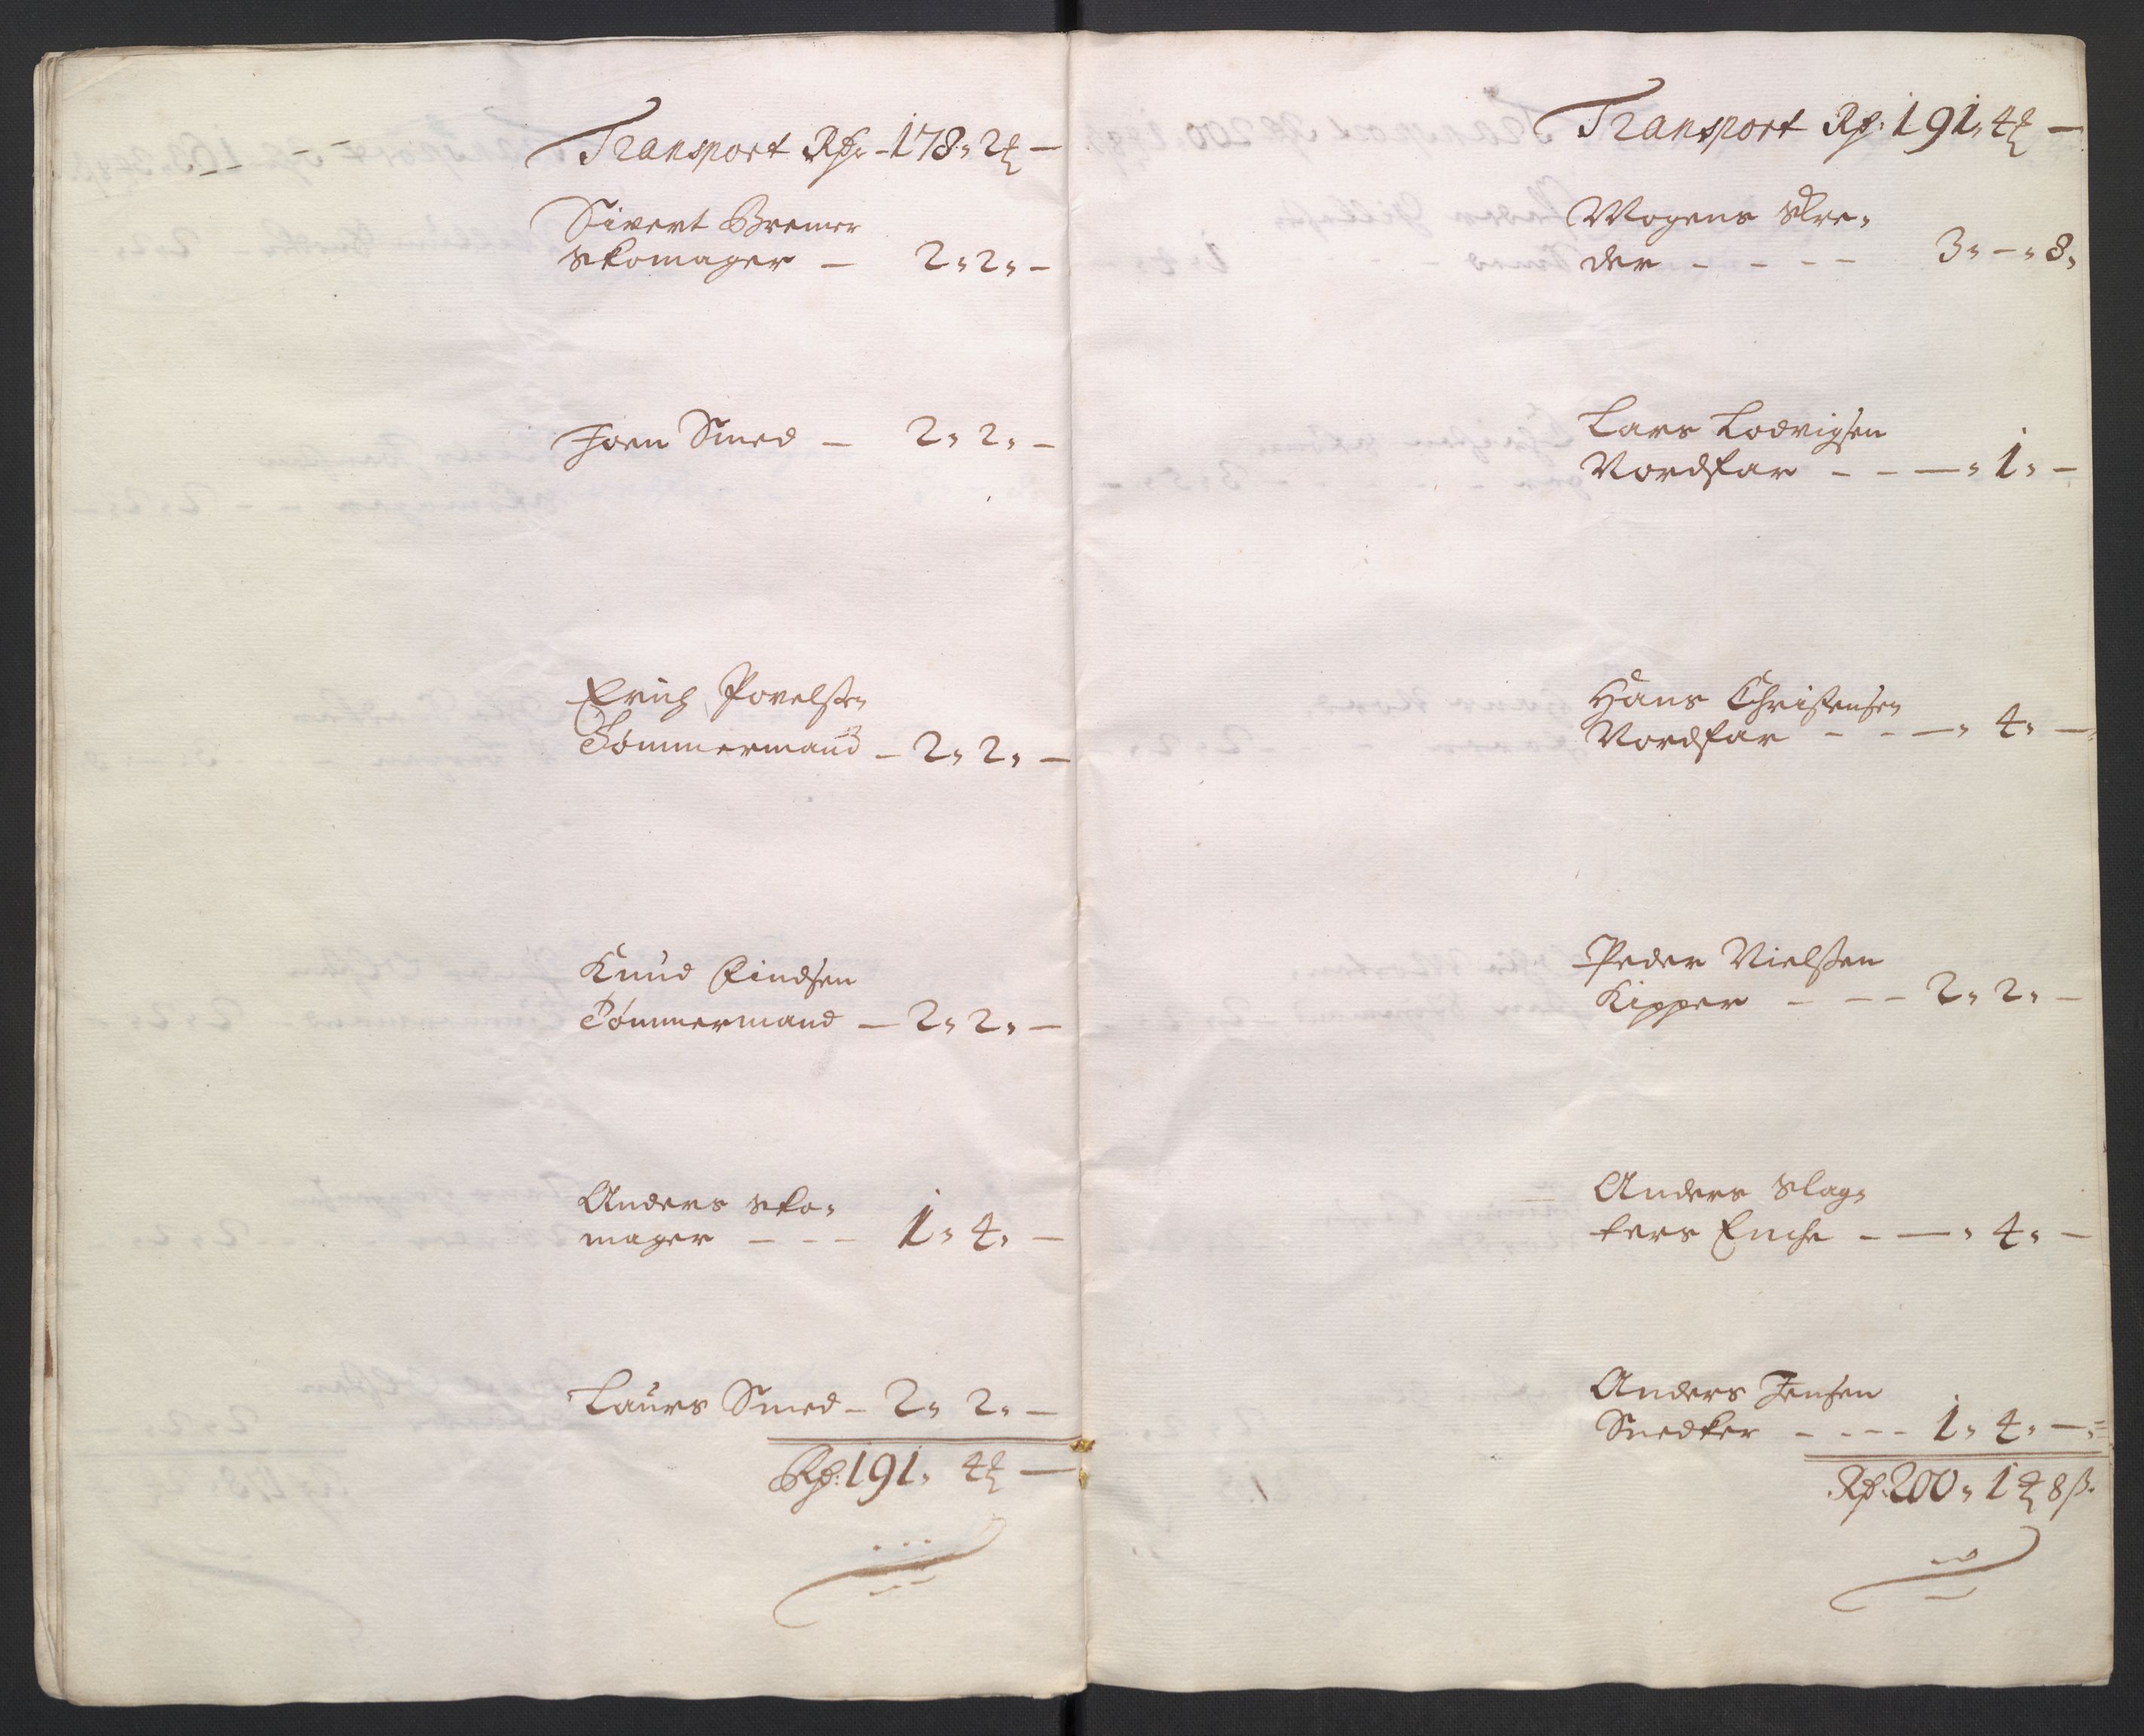 Transport Rdr - 178„ 2 ƶ —
Sivert Bremer
skomager — 2„ 2„ —
Joen Smed — 2„ 2„ —
Erich Povelsen
Tømmermand — 2„ 2„ —
Knud Eindsen
Tømmermand — 2„ 2„ —
Anders sko„
mager — — — 1„ 4„ —
Laurs Smed — 2„ 2„ —
Rd: 191„ 4 ƶ —
Transport Rd: 191„ 4 ƶ —
Mogens skre„
der — — — — 3„ — „ 8„
Lars Lodvigsen
Nordfar — — — „ 1„ —
Hans Christensen
Nordfar — — — „ 4„ —
Peder Nielsen
Kipper — — — 2„ 2„ —
Anders slag„
ters Enche — — „ 4„ —
Anders Jensen
Snedker — — — — 1„ 4„ —
Rd: 200„ 1 ƶ 8 ß.